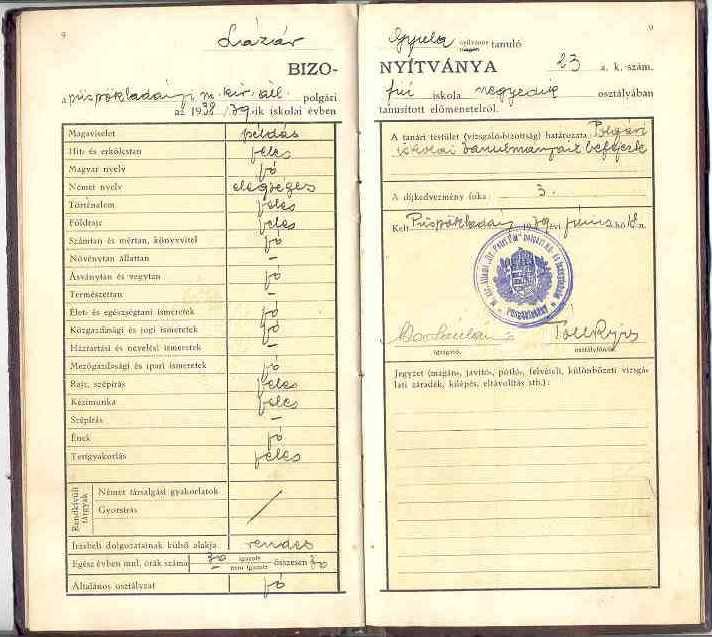 9
Lázár
BIZO-
a püspökladányi m. kir. áll. polgári
az 1938/39-ik iskolai évben
Magaviselet példás
Hit- és erkölcstan jeles
Magyar nyelv jó
Német nyelv elégséges
Történelem jeles
Földrajz jeles
Számtan és mértan, könyvvitel jó
Növénytan állattan –
Ásványtan és vegytan jó
Természettan –
Élet- és egészségtani ismeretek jó
Közgazdasági és jogi ismeretek jó
Háztartási és nevelési ismeretek –
Mezőgazdasági és ipari ismeretek jó
Rajz, szépírás jeles
Kézimunka jeles
Szépírás –
Ének jó
Testgyakorlás jeles
Rendkívüli tárgyak
Német társalgási gyakorlatok
Gyorsírás
Írásbeli dolgozatainak külső alakja rendes
Egész évben mul. órák száma 30 igazolt – nem igazolt összesen 30
Általános osztályzat jó
9
Gyula nyilvános magán tanuló
NYÍTVÁNYA 23 a. k. szám.
fiú iskola negyedik osztályában
tanusított előmenetelről.
A tanári testület (vizsgáló-bizottság) határozata: Polgári
iskolai tanulmányait befejezte
A díjkedvezmény foka: 3.
Kelt Püspökladány, 1939 évi június hó 18.n.
igazgató.
osztályfőnök.
Jegyzet (magán-, javító-, pótló-, felvételi, különbözeti vizsgálati záradék, kilépés, eltávolítás stb.):